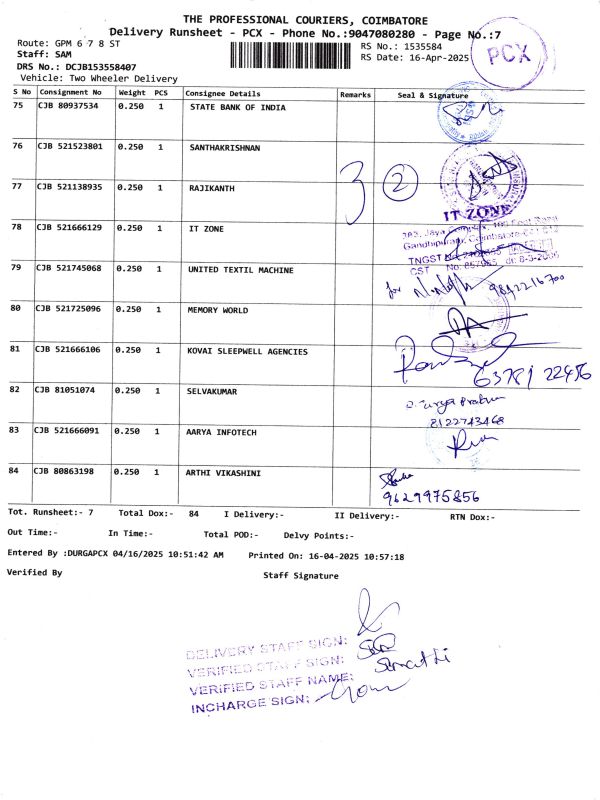 THE PROFESSIONAL COURIERS, COIMBATORE
Delivery Runsheet - PCX - Phone No.:9047080280 - Page No.:7
Route: GPM 6 7 8 ST
RS No.: 1535584
Staff: SAM
RS Date: 16-Apr-2025
PCX
DRS No.: DCJB153558407
Vehicle: Two Wheeler Delivery
S No Consignment No Weight PCS Consignee Details Remarks Seal & Signature
75 CJB 80937534 0.250 1 STATE BANK OF INDIA
76 CJB 521523801 0.250 1 SANTHAKRISHNAN
77 CJB 521138935 0.250 1 RAJIKANTH
3 2
IT ZONE
78 CJB 521666129 0.250 1 IT ZONE
79 CJB 521745068 0.250 1 UNITED TEXTIL MACHINE
for
9842216700
80 CJB 521725096 0.250 1 MEMORY WORLD
81 CJB 521666106 0.250 1 KOVAI SLEEPWELL AGENCIES
63781 22456
82 CJB 81051074 0.250 1 SELVAKUMAR
8122743468
83 CJB 521666091 0.250 1 AARYA INFOTECH
84 CJB 80863198 0.250 1 ARTHI VIKASHINI
9629975856
Tot. Runsheet:- 7 Total Dox:- 84 I Delivery:- II Delivery:- RTN Dox:-
Out Time:- In Time:- Total POD:- Delvy Points:-
Entered By :DURGAPCX 04/16/2025 10:51:42 AM Printed On: 16-04-2025 10:57:18
Verified By Staff Signature
DELIVERY STAFF SIGN:
VERIFIED STAFF SIGN:
VERIFIED STAFF NAME:
INCHARGE SIGN: